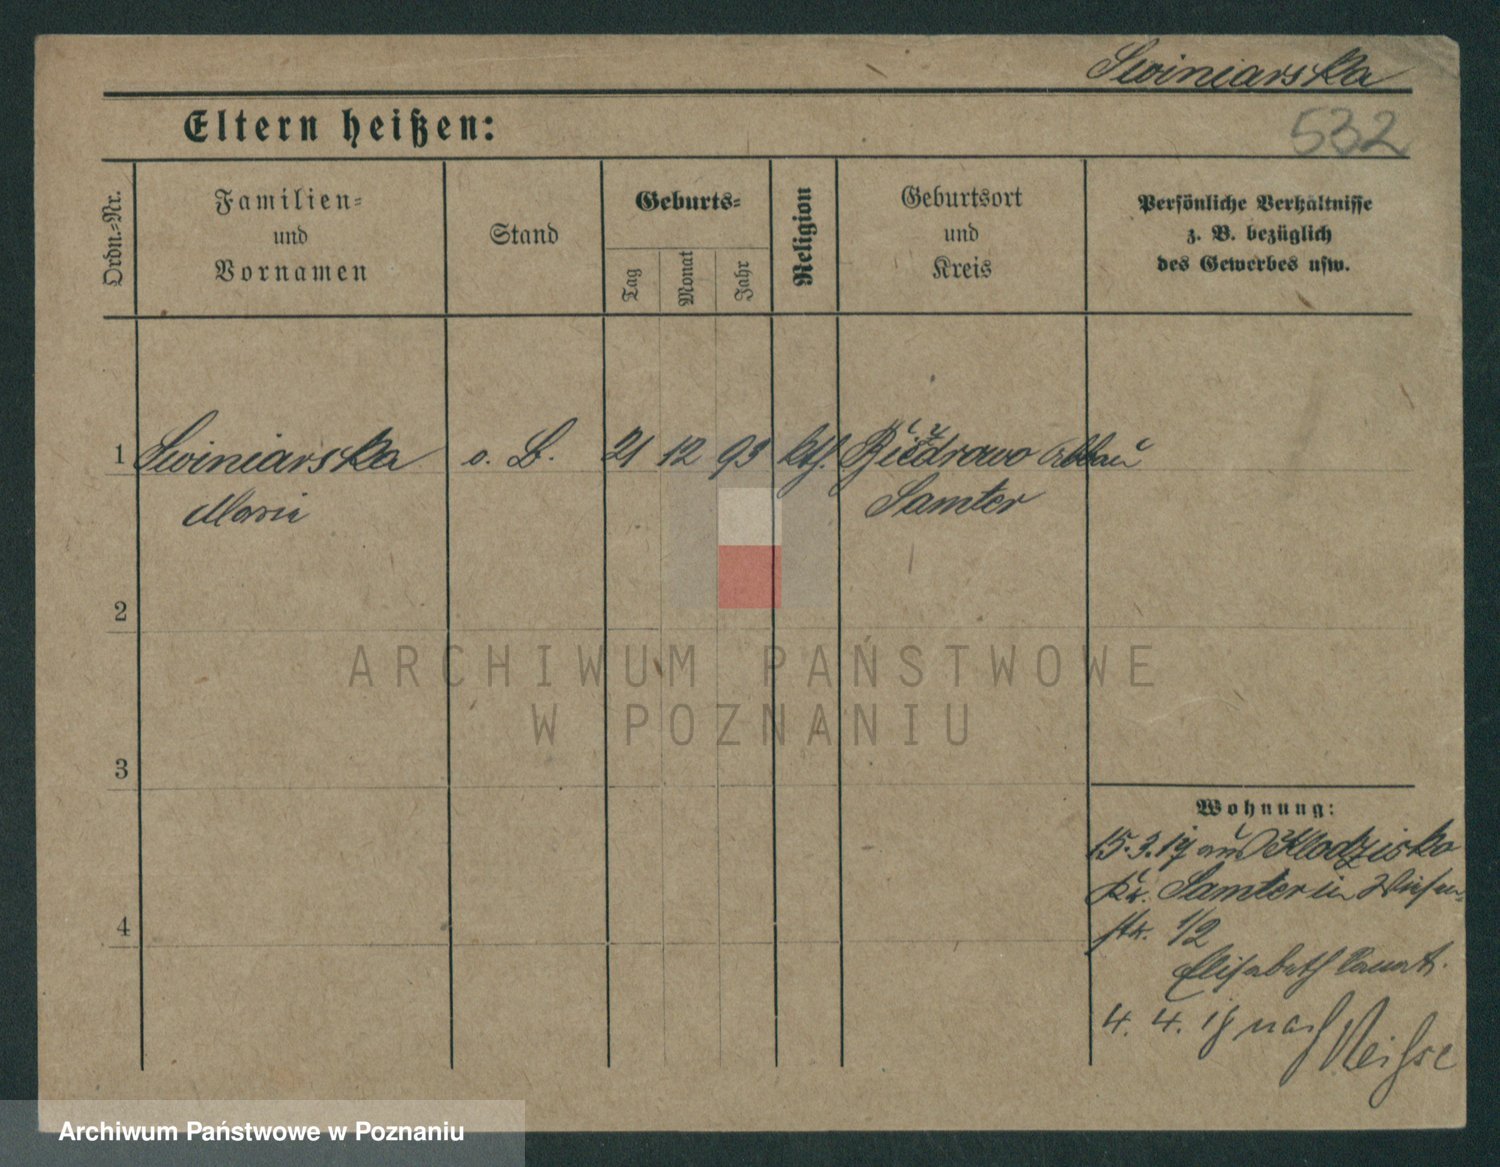 Swiniarska
532
Eltern heißen:
Ordn.-Nr.
Familien-
und
Vornamen
Stand
Geburts-
Tag
Monat
Jahr
Religion
Geburtsort
und
Kreis
Persönliche Verhältnisse
z. B. bezüglich
des Gewerbes usw.
1 Swiniarska o. B. 21 12 93 kth. Biezdrowo Abbau
Maria Samter
2
3
4
Wohnung:
15.3.19 aus Klodzisko
Kr. Samter in Wiesen-
str. 1/2
Elisabeth
4. 4. 19 nach Neisse
ARCHIWUM PAŃSTWOWE
W POZNANIU
Archiwum Państwowe w Poznaniu